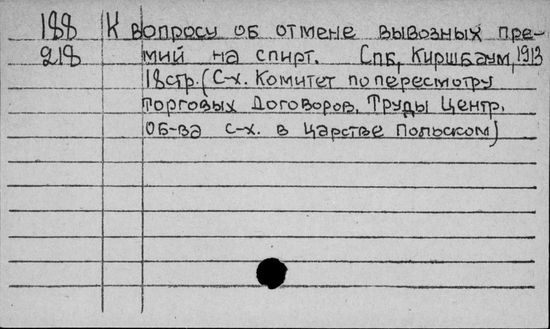 188 К вопросу об отмене вывозных пре-
218 мий на спирт. Спб, Киршбаум, 1913
18стр. (С-х. Комитет по пересмотру
торговых Договоров. Труды Центр.
Об-ва с-х. в Царстве Польском)